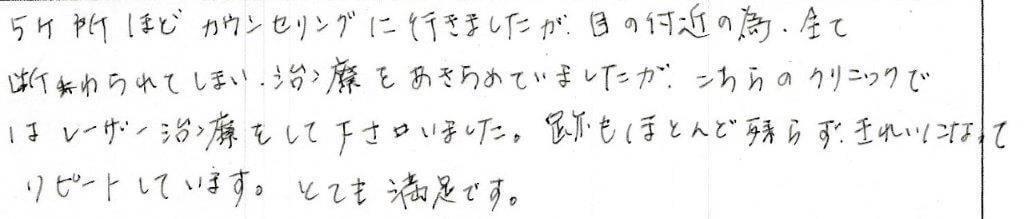 5ヶ所ほどカウンセリングに行きましたが、目の付近の為、全て
断わられてしまい、治療をあきらめていましたが、こちらのクリニックで
はレーザー治療をして下さいました。跡もほとんど残らず、きれいになって
リピートしています。とても満足です。